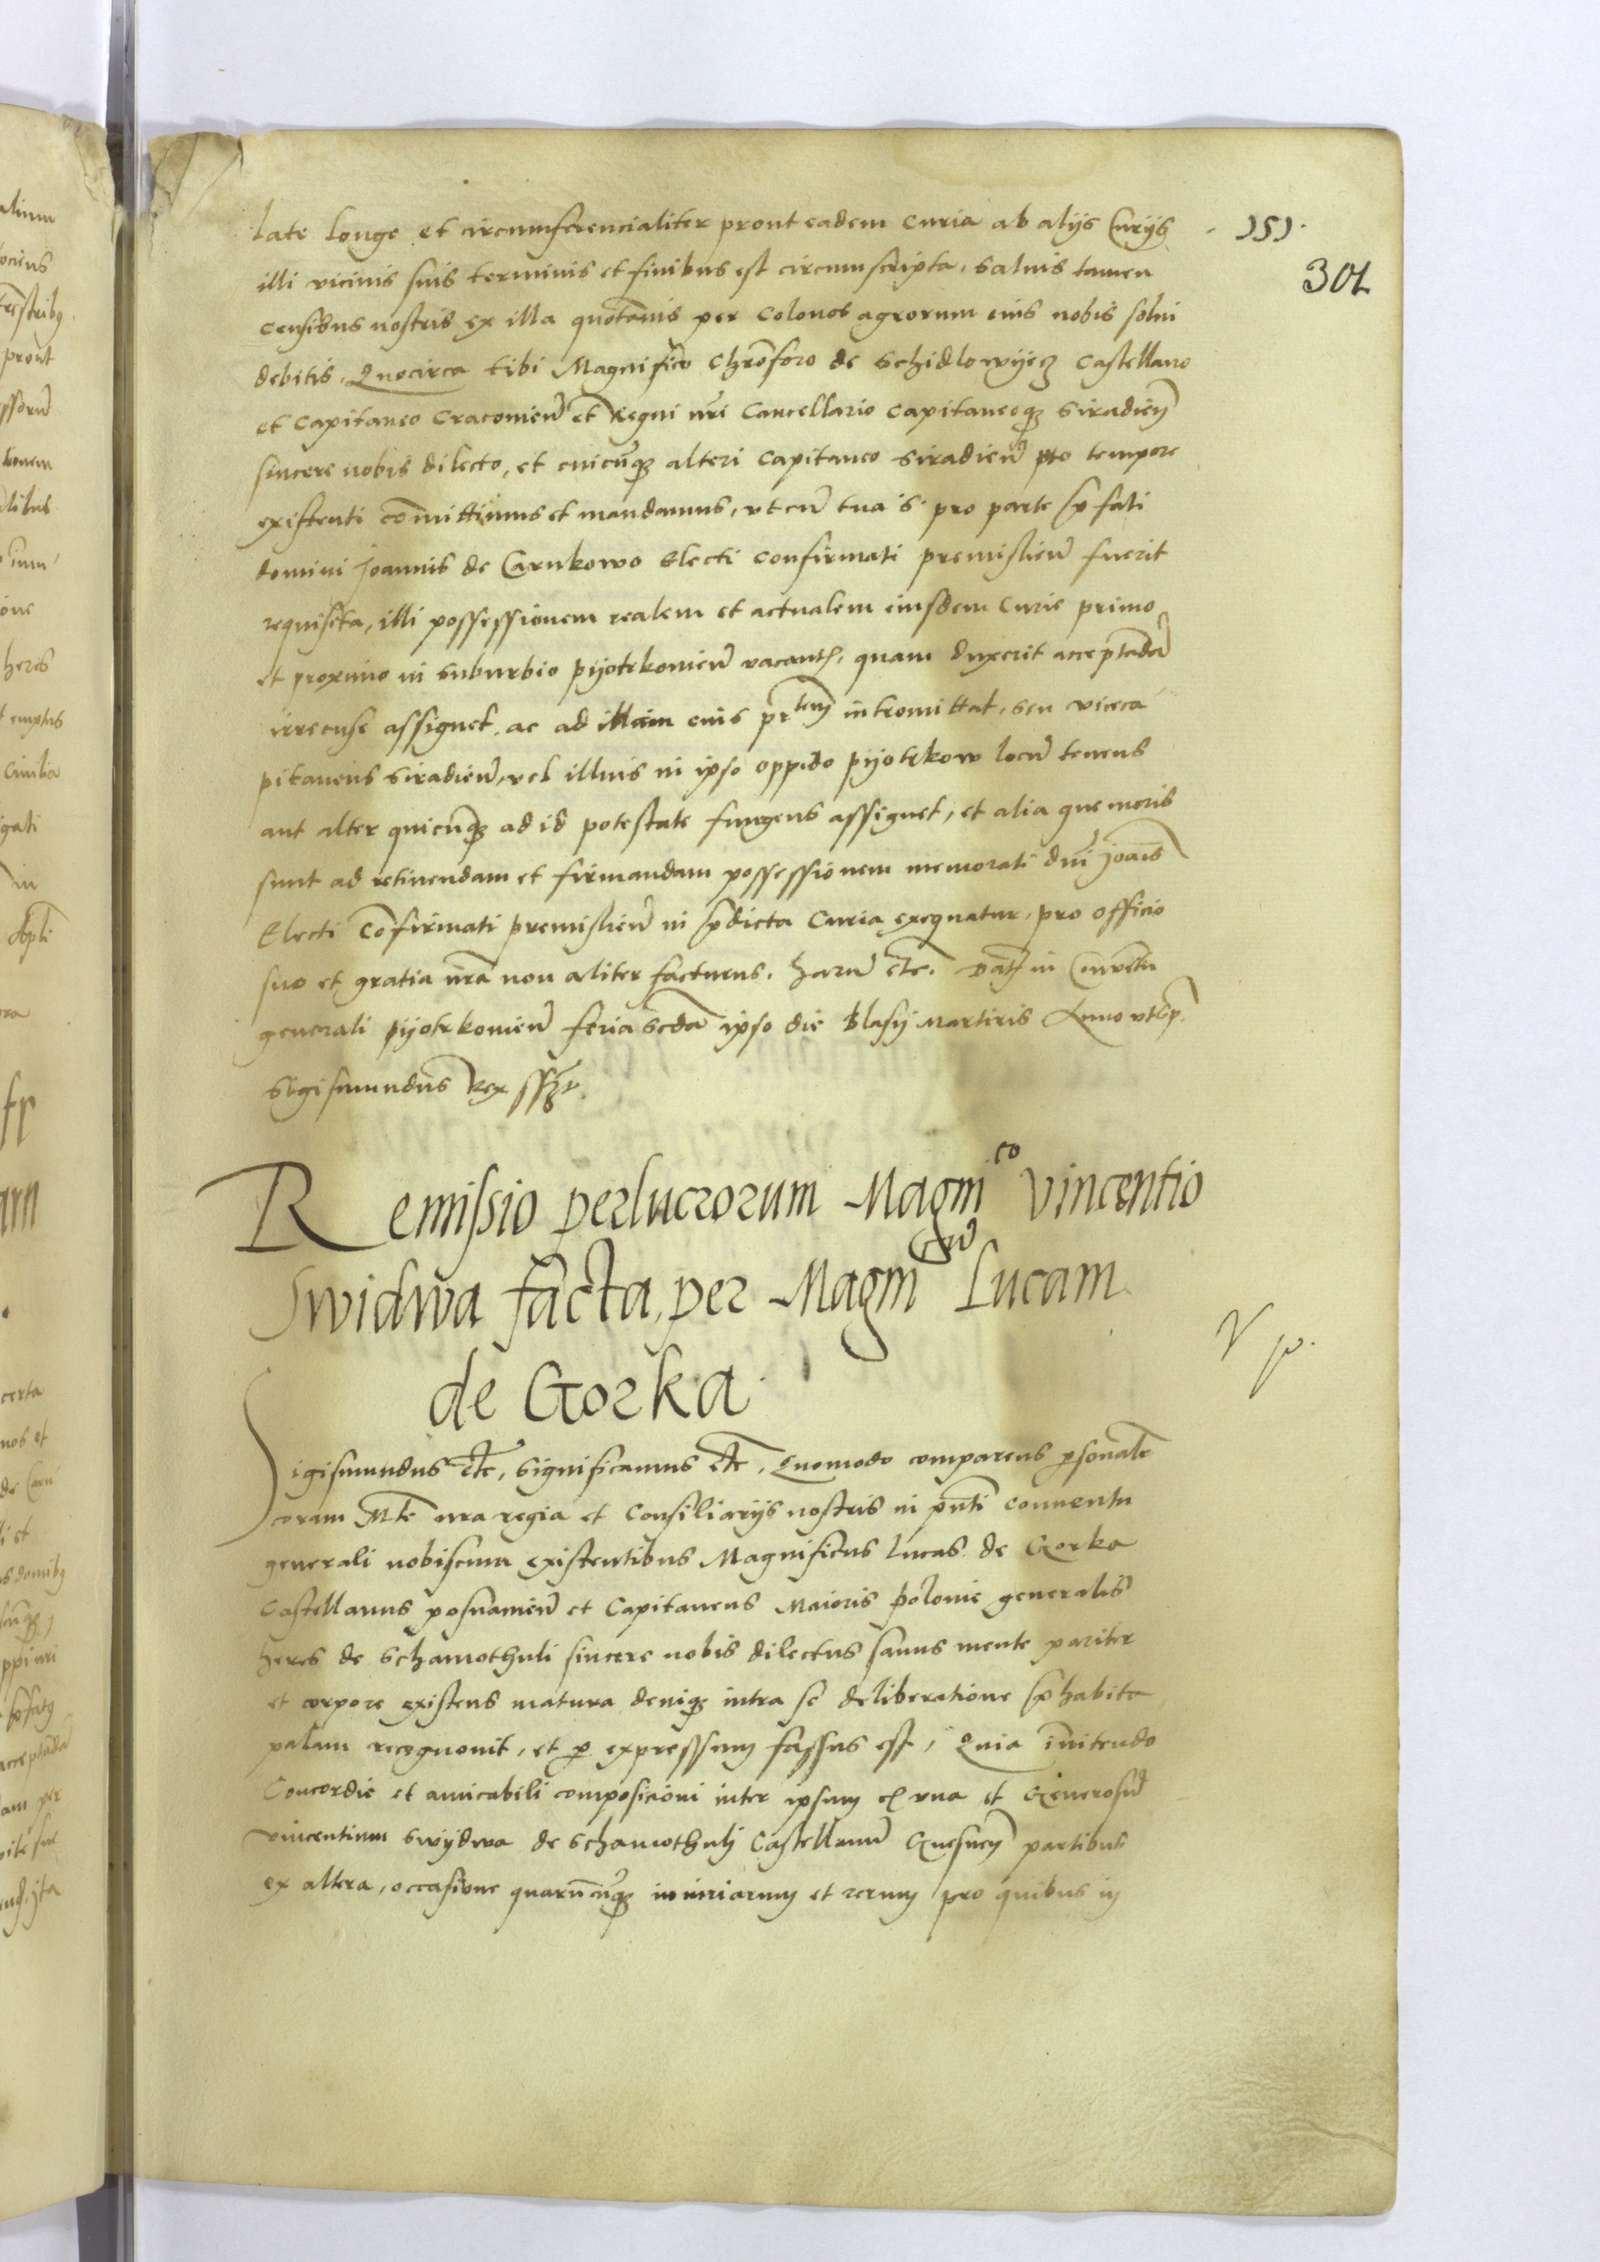 late longe et circumferencialiter prout eadem curia ab alijs Curijs
151.
301
illi vicinis suis terminis et finibus est circumscripta, saluis tamen
censibus nostris ex illa quotanis per colonos agrorum eius nobis solui
debitis, Quocirca tibi Magnifico Chrõforo de Schidlowyecz Castellano
et Capitaneo Cracovieñ et Regni nri Cancellario Capitaneoq3 Siradieñ
sincere nobis dilecto, et cuicũq3 alteri Capitaneo Siradieñ pro tempore
existenti cõmittimus et mandamus, vt cũ tua S. pro parte p̃fati
domini Joannis de Carnkowo Electi confirmati premislieñ fuerit
requisita, illi possessionem realem et actualem eiusdem Curie primo
et proximo in suburbio pijotrkovieñ vacantẽ, quam duxerit acceptãdã
irrecuse assignet. ac ad illam eius p̃rtem intromittat, seu viceca
pitaneus Siradieñ, vel illius in ipso oppido pijotrkow locũ tenens
aut alter quicũq3 ad id potestate fungens assignet, et alia que moris
sunt ad retinendam et firmandam possessionem memorati dñi Joañis
Electi Cõfirmati premislieñ in p̃dicta Curia exequatur, pro officio
suo et gratia nrã non aliter facturus. harũ etc. Dat in Conventu
generali pijotrkovieñ feria sc̃da ipso die Blasij Martiris Anno vt sp̃.
Sigismundus Rex sszt.
Remissio perlucrorum Magnico Vincentio
Swidwa facta, per Magncũ Lucam
de Gorka
V p.
Sigismundus etc, Significamus etc, Quomodo comparens p̃sonalr̃
coram Mte nra regia et Consiliarijs nostris in p̃nti conuentu
generali nobiscum existentibus Magnificus Lucas de Gorka
Castellanus posnanieñ et Capitaneus Maioris polonie generalis
heres de Schamothuli sincere nobis dilectus sanus mente pariter
et corpore existens matura deniq3 intra se deliberatione p̃habita
palam recognouit, et p expressum fassus est, Quia ĩnitendo
Concordie et amicabili composicioni inter ipsum ex vna et Generosũ
vincentium Swydwa de Schamothuly Castellanũ Gnesneñ partibus
ex altera, occasione quarũcũq3 iniuriarum et rerum pro quibus in